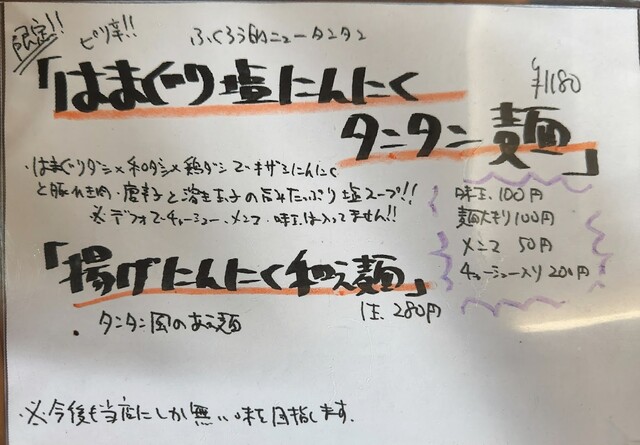 限定!! ピリ辛!! ふくろう的ニュータンタン
「はまぐり塩にんにく ¥1180
タンタン麺」
・はまぐりダシ×和ダシ×鶏ダシで・キザミにんにく
と豚ひき肉・唐辛子と溶き玉子の旨みたっぷり塩スープ!!
※デフォでチャーシュー、メンマ・味玉は入ってません!!
味玉 100円
麺大盛り 100円
メンマ 50円
チャーシュー入り 200円
「揚げにんにく和え麺」
1玉 280円
・タンタン風のあえ麺
※今後も当店にしか無い味を目指します。